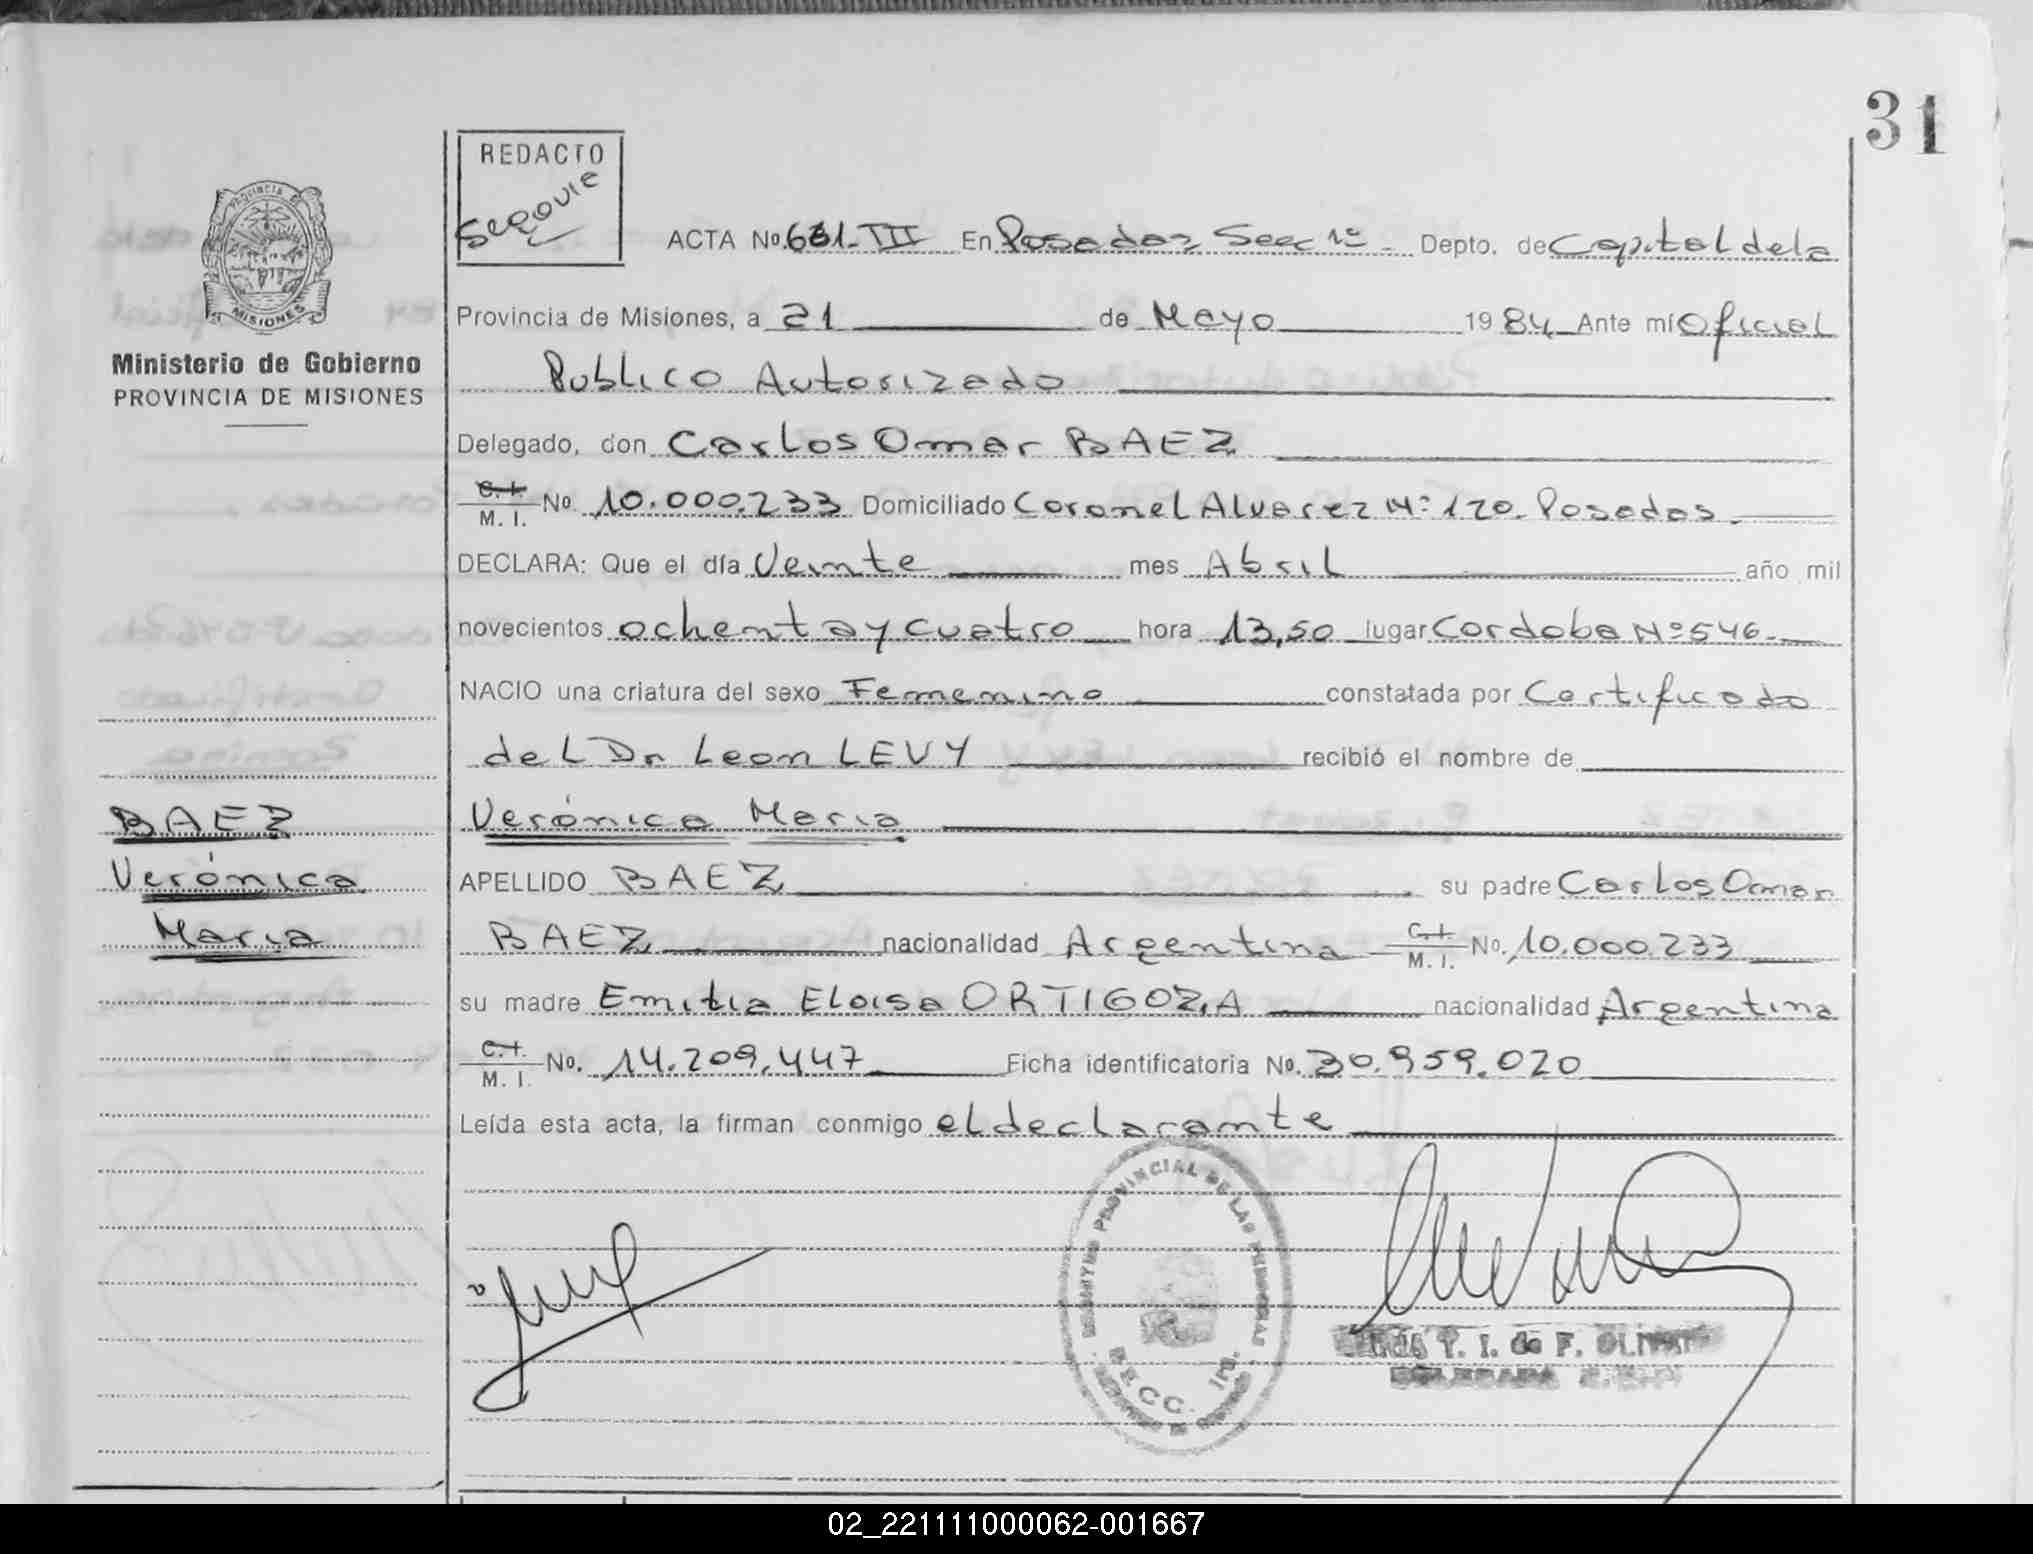 31
REDACTO
Segovie
PROVINCIA DE
MISIONES
Ministerio de Gobierno
PROVINCIA DE MISIONES
ACTA No. 681-III En Posadas Secc 1º - Depto. de Capital de la
Provincia de Misiones, a 21 de Mayo 1984 Ante mí Oficial
Publico Autorizado
Delegado, don Carlos Omar BAEZ
C. I. M. I. No. 10.000.233 Domiciliado Coronel Alvarez Nº 120. Posadas.
DECLARA: Que el día Veinte mes Abril año mil
novecientos ochenta y cuatro hora 13,50 lugar Cordoba Nº 546.
NACIO una criatura del sexo Femenino constatada por Certificado
del Dr Leon LEVY recibió el nombre de
Verónica Maria
BAEZ
Verónica
Maria
APELLIDO BAEZ su padre Carlos Omar
BAEZ nacionalidad Argentina C. I. M. I. No. 10.000.233
su madre Emilia Eloisa ORTIGOZA nacionalidad Argentina
C. I. M. I. No. 14.209.447 Ficha identificatoria No. 30.959.020
Leída esta acta, la firman conmigo el declarante
PROVINCIAL DE LAS PERSONAS
SECC. 1ra.
Y. I. de F.
02_221111000062-001667